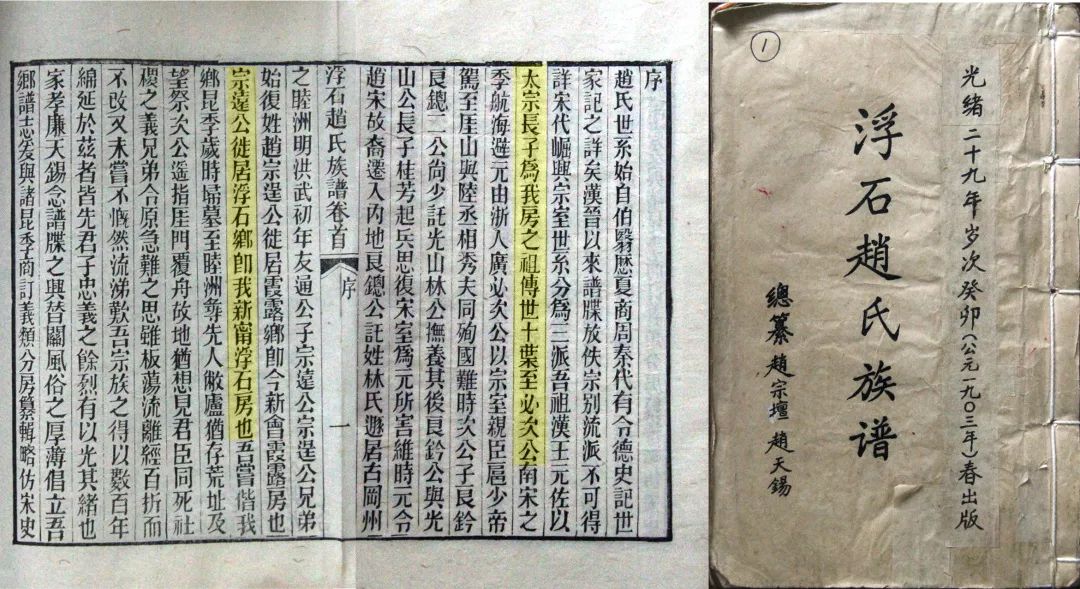 光緒二十九年岁次癸卯(公元一九〇三年)春出版
浮石趙氏族谱
總纂 趙宗壇 趙天锡
1
序
趙氏世系始自伯翳歷夏商周秦代有令德史記世
家記之詳矣漢晉以來譜牒放佚宗別流派不可得
詳宋代崛興宗室世系分爲三派吾祖漢王元佐以
太宗長子爲我房之祖傳世十葉至必次公南宋之
季航海避元由浙入廣必次公以宗室親臣扈少帝
駕至厓山與陸丞相秀夫同殉國難時次公子艮鈐
艮鏓二公尚少託光山林公撫養其後艮鈐公與光
山公長子桂芳起兵思復宋室爲元所害維時元令
趙宋故裔遷入內地艮鏓公託姓林氏遯居古岡州
浮石趙氏族譜卷首 序 一
之睦洲明洪武初年友通公子宗遠公宗逞公兄弟
始復姓趙宗逞公徙居霞露鄉卽今新會霞露房也
宗遠公徙居浮石鄉卽我新甯浮石房也吾嘗偕我
鄉昆季歲時歸墓至睦洲尋先人敝廬猶存荒址及
望祭次公遙指厓門覆舟故地猶想見君臣同死社
稷之義兄弟令原急難之思雖板蕩流離經百折而
不改又未嘗不慨然流涕歎吾宗族之得以數百年
綿延於茲者皆先君子忠義之餘烈有以光其緒也
家孝廉天錫念譜牒之興替關風俗之厚薄倡立吾
鄉譜志爰與諸昆季商訂義類分房纂輯略仿宋史